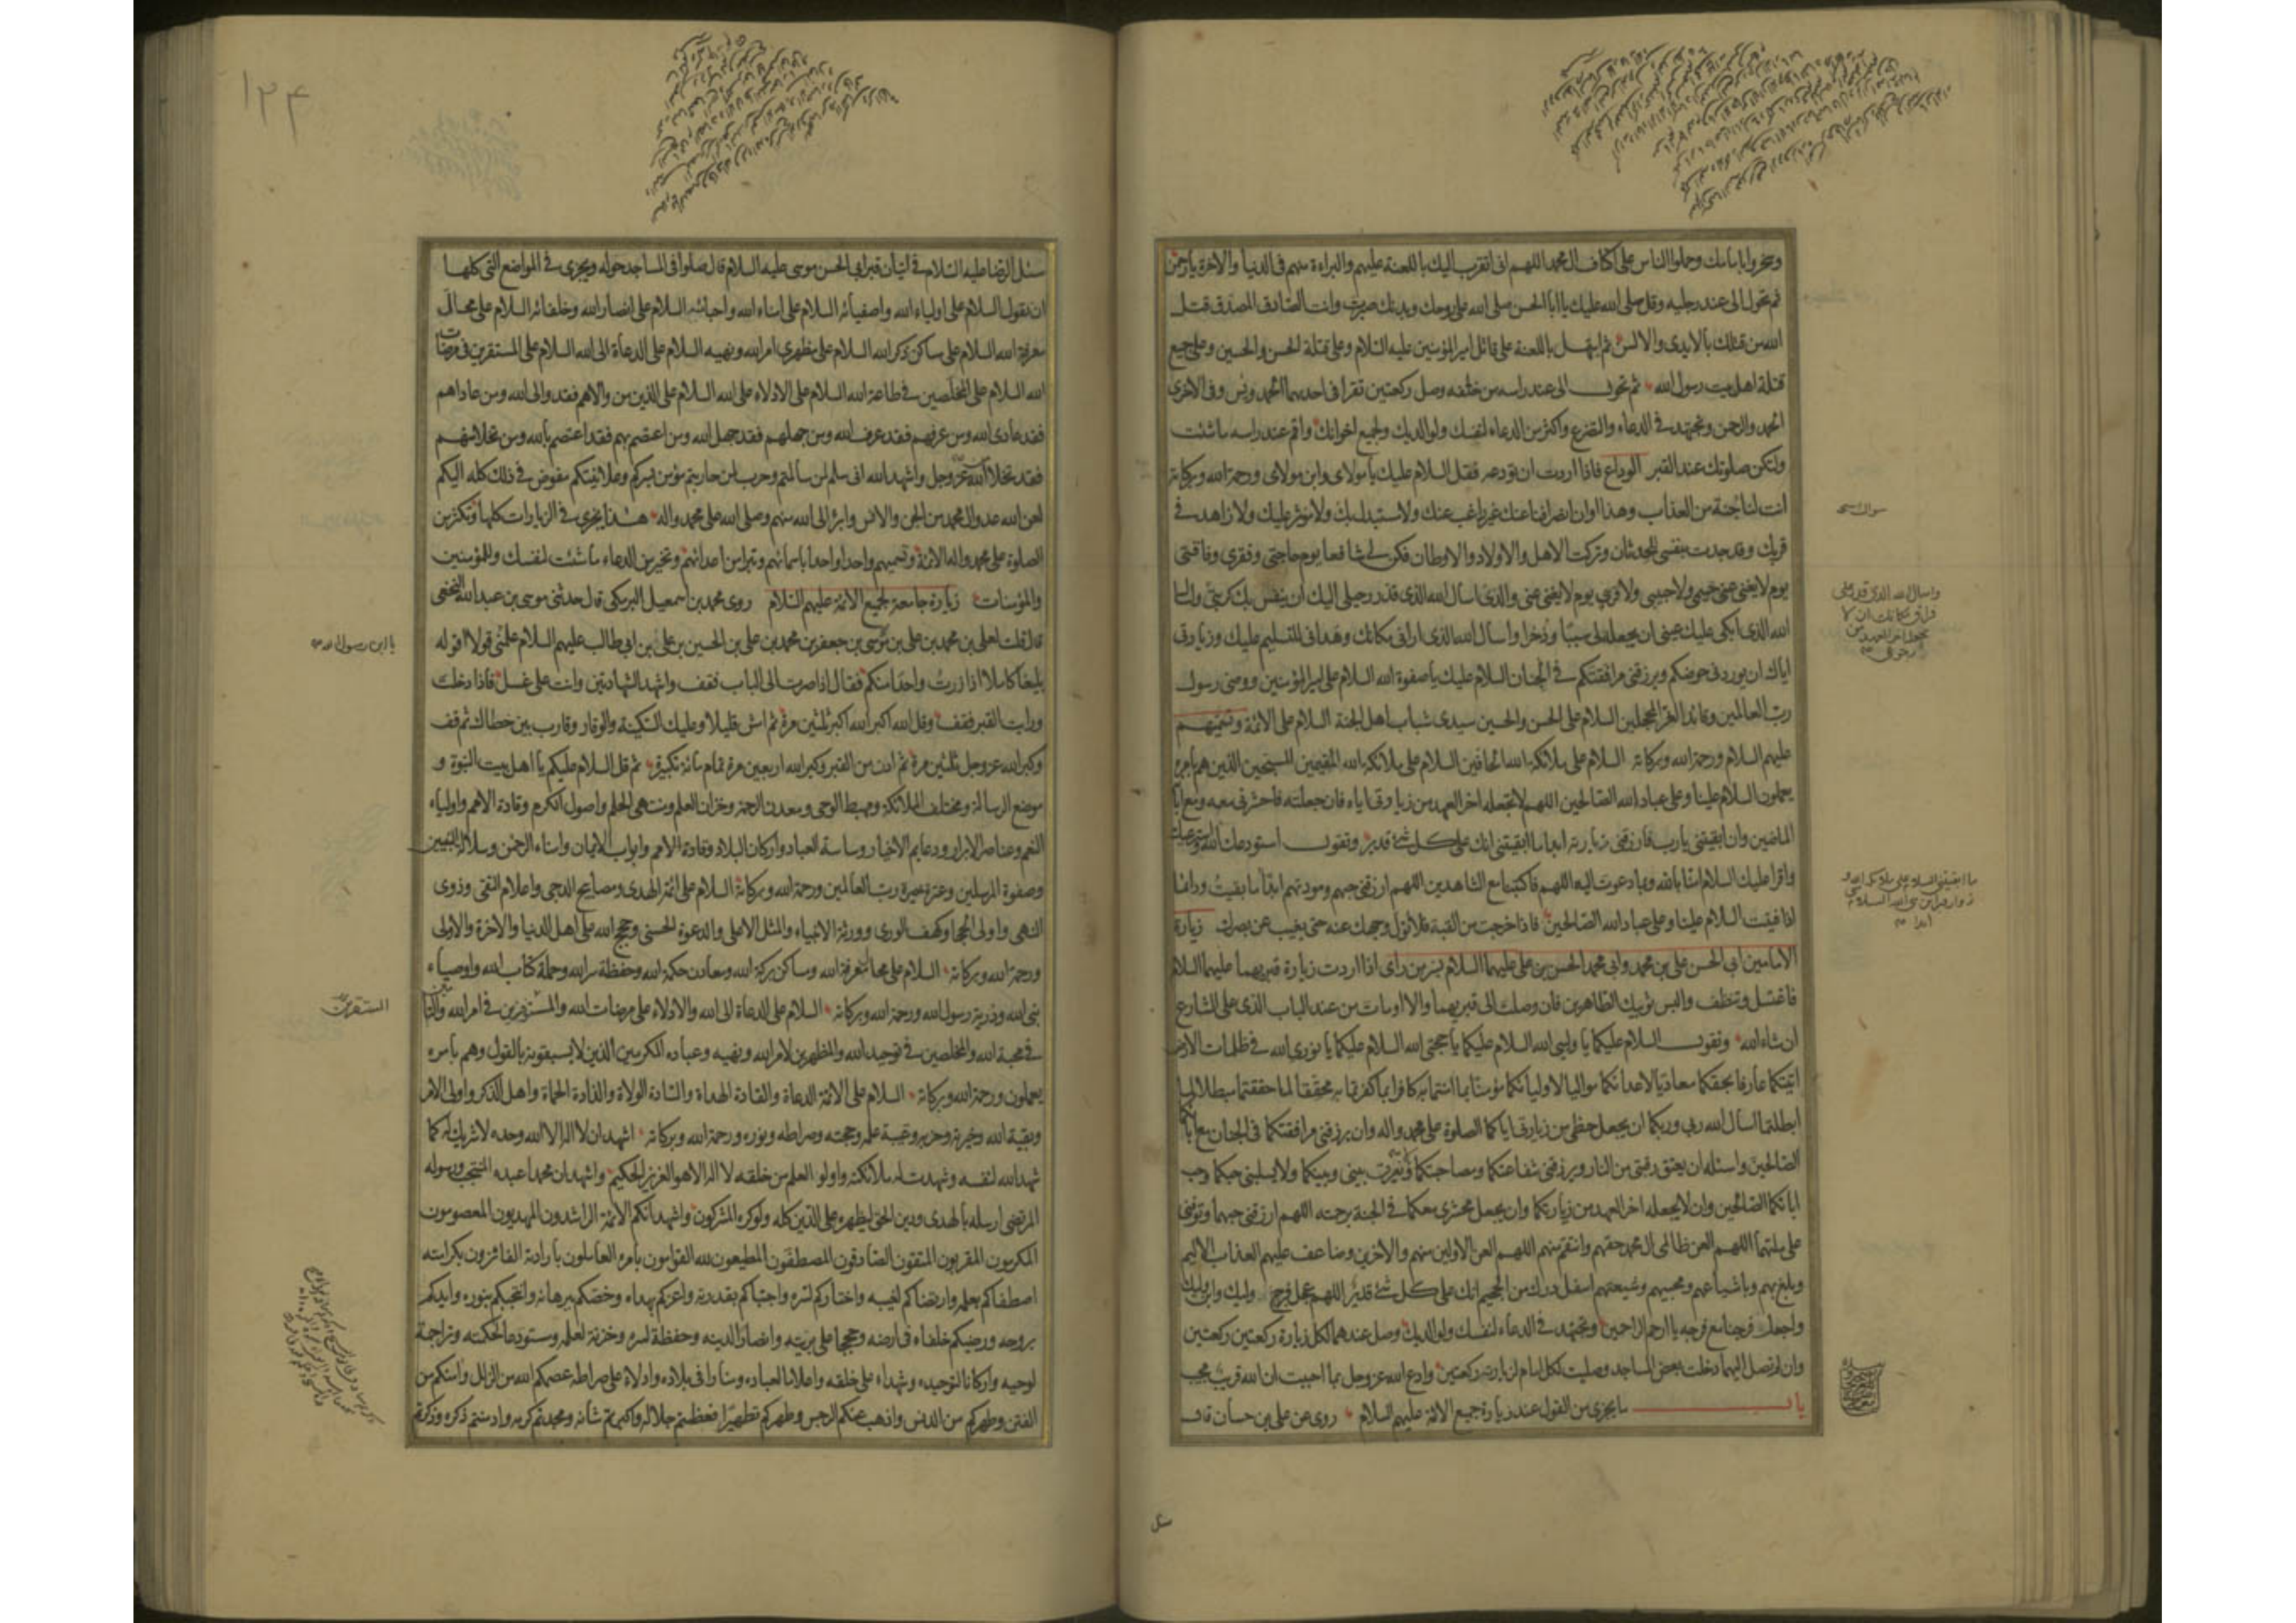 وسخروا بامامك وحملوا الناس على اكتاف ال محمد اللهم انى اتقرب اليك باللعنة عليهم والبراءة منهم فى الدنيا والاخرة يا رحمن
ثم تحول الى عند رجليه وقل صلى الله عليك يا ابا الحسن صلى الله على روحك وبدنك صبرت وانت الصادق المصدق قتل
الله من قتلك بالايدى والالسن ثم ابتهل باللعنة على قاتل امير المؤمنين عليه السلام وعلى قتلة الحسن والحسين وعلى جميع
قتلة اهل بيت رسول الله ثم تحول الى عند راسه من خلفه وصل ركعتين تقرا فى احديهما الحمد ويس وفى الاخرى
الحمد والرحمن وتجتهد فى الدعاء والتضرع واكثر من الدعاء لنفسك ولوالديك ولجميع اخوانك واقم عند راسه ما شئت
ولتكن صلوتك عند القبر الوداع فاذا اردت ان تودعه فقل السلام عليك يا مولاى وابن مولاى ورحمة الله وبركاته
انت لنا جنة من العذاب وهذا اوان انصرافنا عنك غير راغب عنك ولا مستبدل بك ولا موثر عليك ولا زاهد فى
قربك وقد جدت بنفسى للحدثان وتركت الاهل والاولاد والاوطان فكن لى شافعا يوم حاجتى وفقرى وفاقتى
يوم لا يغنى عنى حميمى ولا حبيبى ولا قريبى يوم لا يغنى عنى والدى اسال الله الذى قدر رحيلى اليك ان ينفس بك كربتى واسال
الله الذى ابكى عليك عينى ان يجعله لى سببا وذخرا واسال الله الذى ارانى مكانك وهدانى للتسليم عليك وزيارتى
اياك ان يوردنى حوضكم ويرزقنى مرافقتكم فى الجنان السلام عليك يا صفوة الله السلام على امير المؤمنين ووصى رسول
رب العالمين وقائد الغر المحجلين السلام على الحسن والحسين سيدى شباب اهل الجنة السلام على الائمة وتسميهم
عليهم السلام ورحمة الله وبركاته السلام على ملائكة الله الحافين السلام على ملائكة الله المقيمين المسبحين الذين هم بامره
يعملون السلام علينا وعلى عباد الله الصالحين اللهم لا تجعله اخر العهد من زيارتى اياه فان جعلته فاحشرنى معه ومع ابائه
الماضين وان ابقيتنى يا رب فارزقنى زيارته ابدا ما ابقيتنى انك على كل شئ قدير وتقول استودعك الله واسترعيك
واقرا عليك السلام امنا بالله وبما دعوت اليه اللهم فاكتبنا مع الشاهدين اللهم ارزقنى حبهم ومودتهم ابدا ما بقيت ودائما
اذا فنيت السلام علينا وعلى عباد الله الصالحين فاذا خرجت من القبة فلا تول وجهك عنه حتى يغيب عن بصرك زيارة
الامامين ابى الحسن على بن محمد وابى محمد الحسن بن على عليهما السلام بسر من راى اذا اردت زيارة قبريهما عليهما السلام
فاغتسل وتنظف والبس ثوبيك الطاهرين فان وصلت الى قبريهما والا اومات من عند الباب الذى على الشارع
ان شاء الله وتقول السلام عليكما يا وليى الله السلام عليكما يا حجتى الله السلام عليكما يا نورى الله فى ظلمات الارض
اتيتكما عارفا بحقكما معاديا لاعدائكما مواليا لاوليائكما مؤمنا بما امنتما به كافرا بما كفرتما به محققا لما حققتما مبطلا لما
ابطلتما اسال الله ربى وربكما ان يجعل حظى من زيارتى اياكما الصلوة على محمد واله وان يرزقنى مرافقتكما فى الجنان مع ابائكما
الصالحين واسئله ان يعتق رقبتى من النار ويرزقنى شفاعتكما ومصاحبتكما ويعرف بينى وبينكما ولا يسلبنى حبكما وحب
ابائكما الصالحين وان لا يجعله اخر العهد من زيارتكما وان يجعل محشرى معكما فى الجنة برحمته اللهم ارزقنى حبهما وتوفنى
على ملتهما اللهم العن ظالمى ال محمد حقهم وانتقم منهم اللهم العن الاولين منهم والاخرين وضاعف عليهم العذاب الاليم
وبلغ بهم وباشياعهم ومحبيهم وشيعتهم اسفل درك من الجحيم انك على كل شئ قدير اللهم عجل فرج وليك وابن وليك
واجعل فرجنا مع فرجه يا ارحم الراحمين وتجتهد فى الدعاء لنفسك ولوالديك وصل عندهما لكل زيارة ركعتين ركعتين
وان لم تصل اليهما دخلت بعض المساجد وصليت لكل امام لزيارته ركعتين وادع الله عز وجل بما احببت ان الله قريب مجيب
باب ما يجزى من القول عند زيارة جميع الائمة عليهم السلام روى عن على بن حسان قال
واسال الله الذى قدر على
فراق مكانك ان لا
يجعله اخر العهد من
رجوعى
ما ابقيتنى السلام على ملائكة الله و
زوار قبر ابن نبى الله السلام منى
ابدا
سئل
۱۲۴
سئل الرضا عليه السلام فى اتيان قبر ابى الحسن موسى عليه السلام قال صلوا فى المساجد حوله ويجزى فى المواضع التى كلها
ان تقول السلام على اولياء الله واصفيائه السلام على امناء الله واحبائه السلام على انصار الله وخلفائه السلام على محال
معرفة الله السلام على مساكن ذكر الله السلام على مظهرى امر الله ونهيه السلام على الدعاة الى الله السلام على المستقرين فى مرضات
الله السلام على المخلصين فى طاعة الله السلام على الادلاء على الله السلام على الذين من والاهم فقد والى الله ومن عاداهم
فقد عادى الله ومن عرفهم فقد عرف الله ومن جهلهم فقد جهل الله ومن اعتصم بهم فقد اعتصم بالله ومن تخلا منهم
فقد تخلا من الله عز وجل واشهد الله انى سلم لمن سالمتم وحرب لمن حاربتم مؤمن بسركم وعلانيتكم مفوض فى ذلك كله اليكم
لعن الله عدو ال محمد من الجن والانس وابرؤ الى الله منهم وصلى الله على محمد واله هذا يجزى فى الزيارات كلها وتكثر من
الصلوة على محمد واله الائمة وتسميهم واحدا واحدا باسمائهم وتبرا من اعدائهم وتخير من الدعاء ما شئت لنفسك وللمؤمنين
والمؤمنات زيارة جامعة لجميع الائمة عليهم السلام روى محمد بن اسمعيل البرمكى قال حدثنى موسى بن عبد الله النخعى
قال قلت لعلى بن محمد بن على بن موسى بن جعفر بن محمد بن على بن الحسين بن على بن ابى طالب عليهم السلام علمنى قولا اقوله
بليغا كاملا اذا زرت واحدا منكم فقال اذا صرت الى الباب فقف واشهد الشهادتين وانت على غسل فاذا دخلت
ورايت القبر فقف وقل الله اكبر الله اكبر ثلثين مرة ثم امش قليلا وعليك السكينة والوقار وقارب بين خطاك ثم قف
وكبر الله عز وجل ثلثين مرة ثم ادن من القبر وكبر الله اربعين مرة تمام مائة تكبيرة ثم قل السلام عليكم يا اهل بيت النبوة و
موضع الرسالة ومختلف الملائكة ومهبط الوحى ومعدن الرحمة وخزان العلم ومنتهى الحلم واصول الكرم وقادة الامم واولياء
النعم وعناصر الابرار ودعايم الاخيار وساسة العباد واركان البلاد وقادة الامم وابواب الايمان وامناء الرحمن وسلالة النبيين
وصفوة المرسلين وعترة خيرة رب العالمين ورحمة الله وبركاته السلام على ائمة الهدى ومصابيح الدجى واعلام التقى وذوى
النهى واولى الحجا وكهف الورى وورثة الانبياء والمثل الاعلى والدعوة الحسنى وحجج الله على اهل الدنيا والاخرة والاولى
ورحمة الله وبركاته السلام على محال معرفة الله ومساكن بركة الله ومعادن حكمة الله وحفظة سر الله وحملة كتاب الله واوصياء
نبى الله وذرية رسول الله ورحمة الله وبركاته السلام على الدعاة الى الله والادلاء على مرضات الله والمستقرين فى امر الله والتامين
فى محبة الله والمخلصين فى توحيد الله والمظهرين لامر الله ونهيه وعباده المكرمين الذين لا يسبقونه بالقول وهم بامره
يعملون ورحمة الله وبركاته السلام على الائمة الدعاة والقادة الهداة والسادة الولاة والذادة الحماة واهل الذكر واولى الامر
وبقية الله وخيرته وحزبه وعيبة علمه وحجته وصراطه ونوره ورحمة الله وبركاته اشهد ان لا اله الا الله وحده لا شريك له كما
شهد الله لنفسه وشهدت له ملائكته واولو العلم من خلقه لا اله الا هو العزيز الحكيم واشهد ان محمدا عبده المنتجب ورسوله
المرتضى ارسله بالهدى ودين الحق ليظهره على الدين كله ولو كره المشركون واشهد انكم الائمة الراشدون المهديون المعصومون
المكرمون المقربون المتقون الصادقون المصطفون المطيعون لله القوامون بامره العاملون بارادته الفائزون بكرامته
اصطفاكم بعلمه وارتضاكم لغيبه واختاركم لسره واجتباكم بقدرته واعزكم بهداه وخصكم ببرهانه وانتجبكم بنوره وايدكم
بروحه ورضيكم خلفاء فى ارضه وحججا على بريته وانصارا لدينه وحفظة لسره وخزنة لعلمه ومستودعا لحكمته وتراجمة
لوحيه واركانا لتوحيده وشهداء على خلقه واعلاما لعباده ومنارا فى بلاده وادلاء على صراطه عصمكم الله من الزلل وامنكم من
الفتن وطهركم من الدنس واذهب عنكم الرجس وطهركم تطهيرا فعظمتم جلاله واكبرتم شانه ومجدتم كرمه وادمنتم ذكره وذكرتم
يا ابن رسول الله
المستقرين